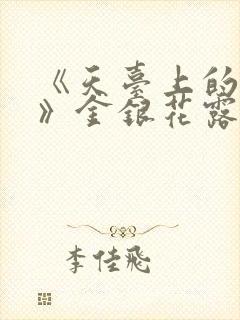 《天臺上的
》金銀花露
李佳飛